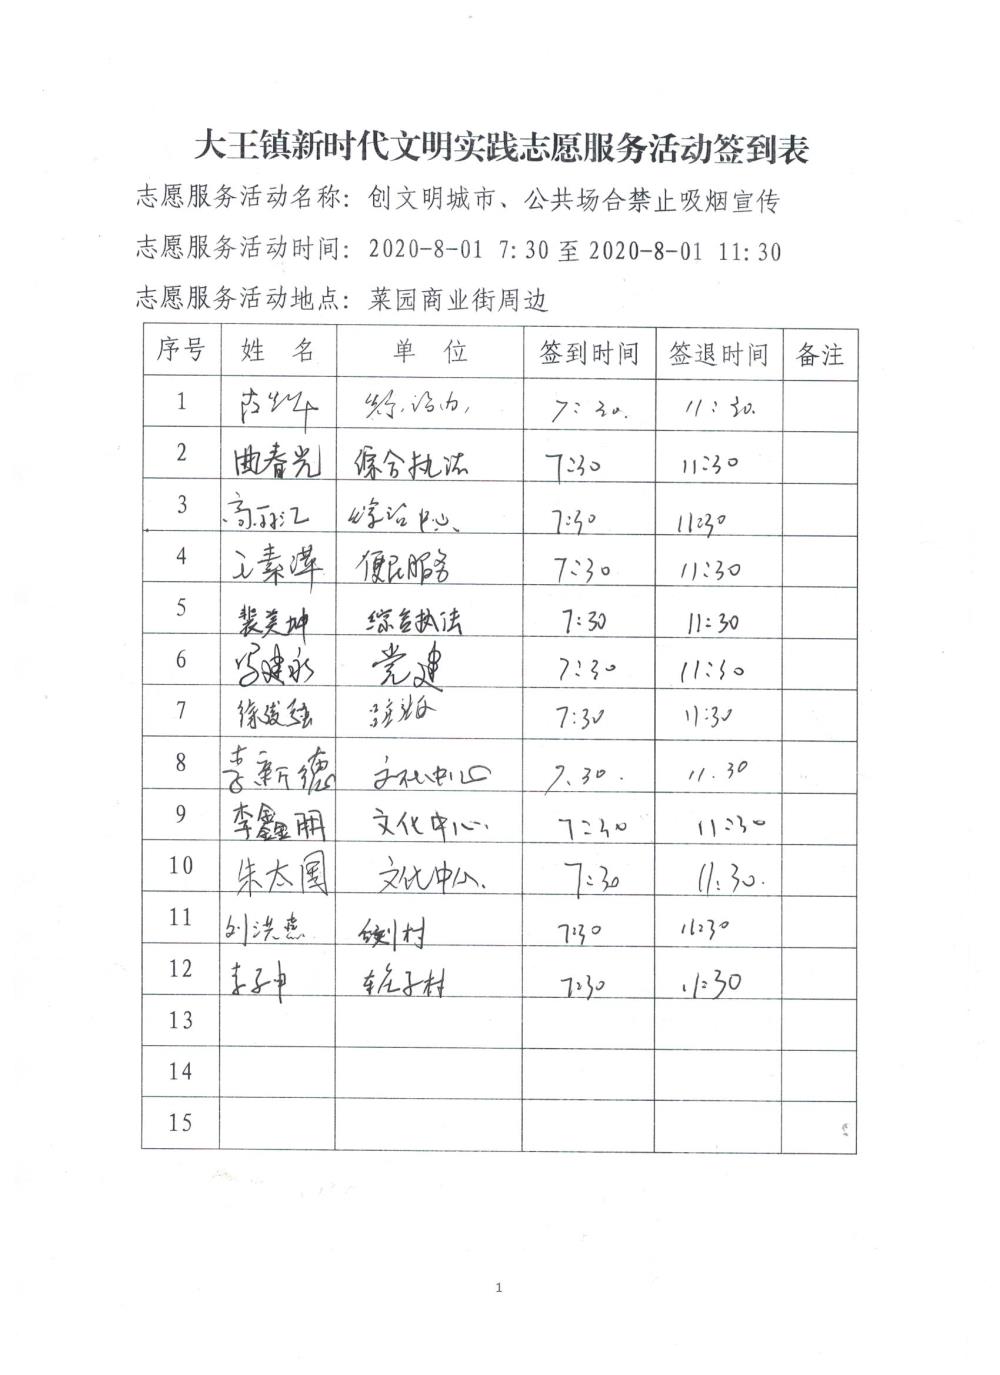 大王镇新时代文明实践志愿服务活动签到表
志愿服务活动名称：创文明城市、公共场合禁止吸烟宣传
志愿服务活动时间：2020-8-01 7:30 至 2020-8-01 11:30
志愿服务活动地点：菜园商业街周边
序号 姓 名 单 位 签到时间 签退时间 备注
1 7:30. 11:30.
2 曲春光 综合执法 7:30 11:30
3 综治中心 7:30 11:30
4 王素萍 便民服务 7:30 11:30
5 裴美坤 综合执法 7:30 11:30
6 冯建永 党建 7:30 11:30
7 7:30 11:30
8 李新德 文化中心 7.30. 11.30
9 李鑫朋 文化中心. 7:30 11:30
10 朱太国 文化中心. 7:30 11:30.
11 刘洪燕 7:30 11:30
12 李子申 7:30 11:30
13
14
15
1